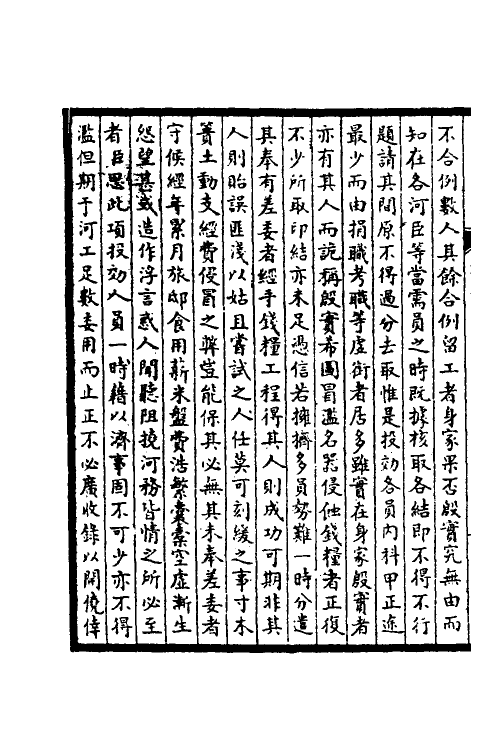 不合例數人其餘合例留工者身家果否殷實究無由而
知在各河臣等當需員之時既據核取各結即不得不行
題請其間原不得過分去取惟是投効各員內科甲正途
最少而由捐職考職等虛銜者居多雖實在身家殷實者
亦有其人而詭稱殷實希圖冒濫名器侵蝕錢糧者正復
不少所取印結亦未足憑信若擁擠多員勢難一時分遣
其奉有差委者經手錢糧工程得其人則成功可期非其
人則貽誤匪淺以姑且嘗試之人任莫可刻緩之事寸木
簣土動支經費侵冐之弊豈能保其必無其未奉差委者
守候經年累月旅邸食用薪米盤費浩繁囊橐空虛漸生
怨望甚或造作浮言惑人聞聽阻撓河務皆情之所必至
者臣思此項投効人員一時藉以濟事固不可少亦不得
濫但期于河工足敷委用而止正不必廣收錄以開僥倖